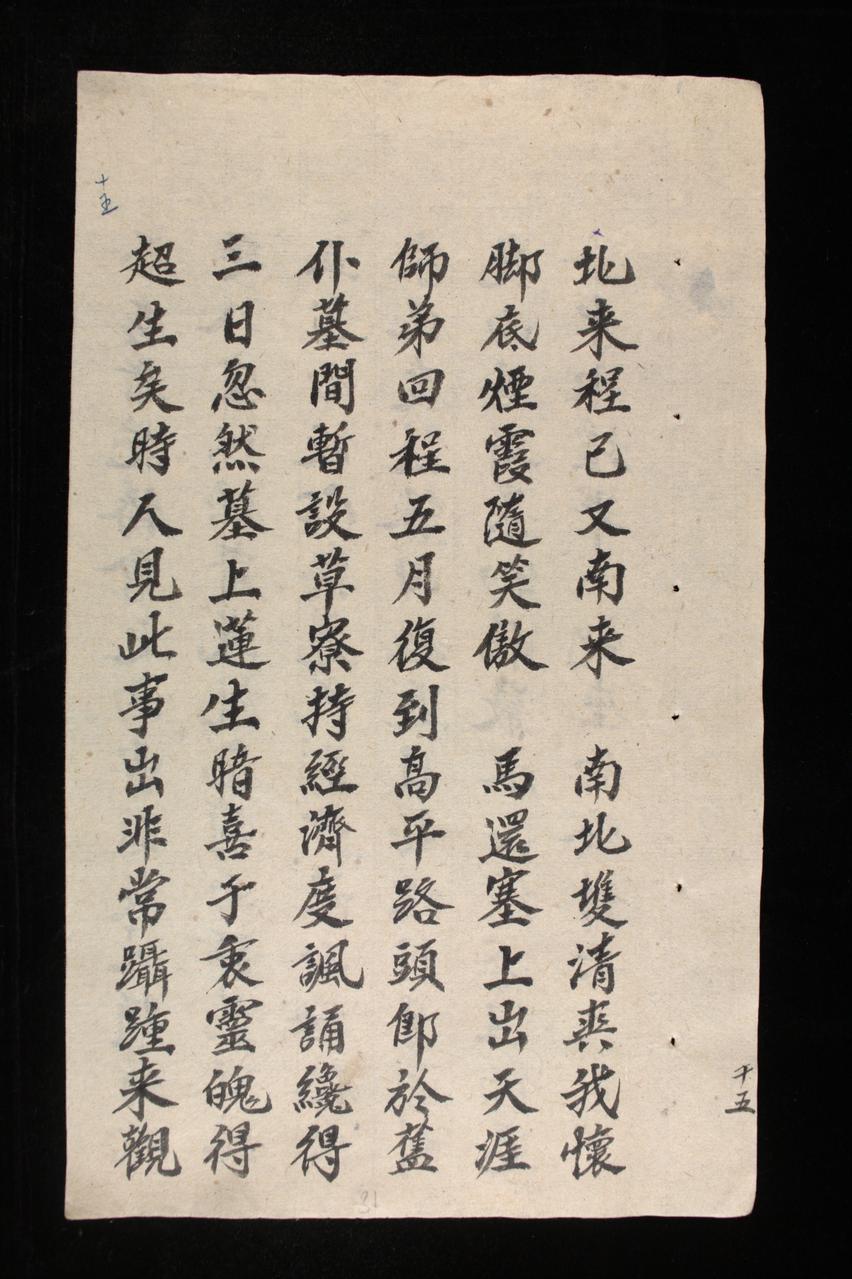 北来程已又南来　南北䨇清爽我懷
脚底煙霞隨笑傲　馬還塞上出天涯
師弟回程五月復到高平路頭郎於舊
仆墓間暫設草寮持經濟度諷誦纔得
三日忽然墓上蓮生暗喜于衷靈魄得
超生矣時人見此事出非常躡踵来觀
十五
十五
31